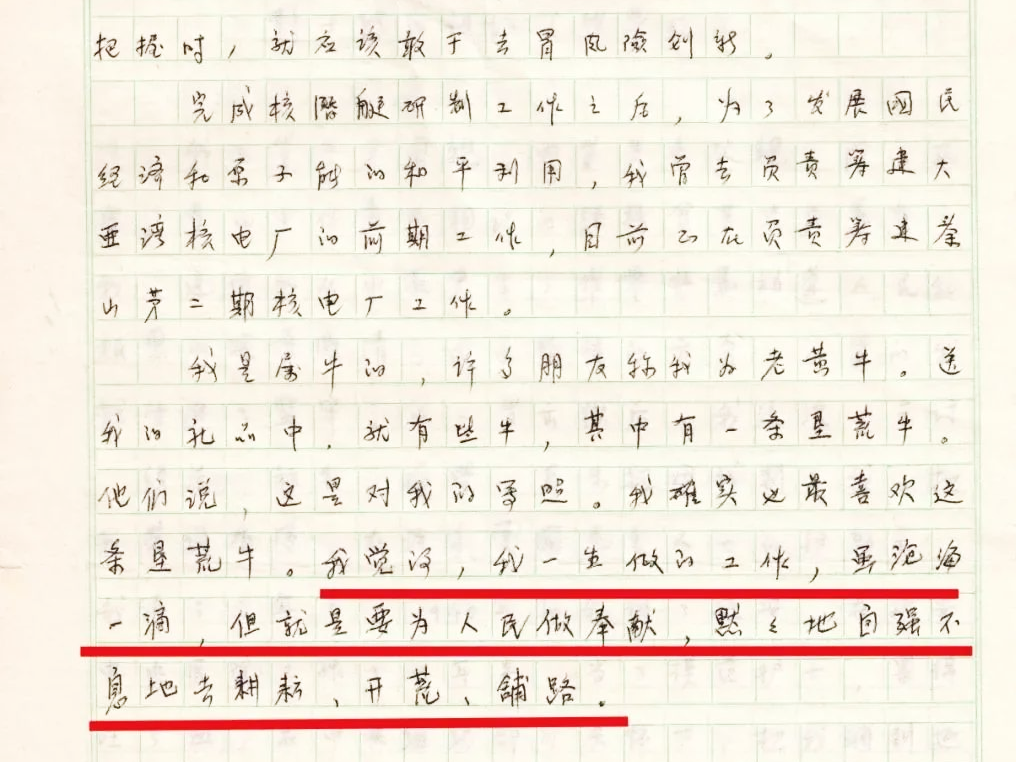 把握时，就应该敢于去冒风险创新。
完成核潜艇研制工作之后，为了发展国民
经济和原子能的和平利用，我曾去负责筹建大
亚湾核电厂的前期工作，目前正在负责筹建秦
山第二期核电厂工作。
我是属牛的，许多朋友称我为老黄牛。送
我的礼品中，就有些牛，其中有一条垦荒牛。
他们说，这是对我的写照。我确实也最喜欢这
条垦荒牛。我觉得，我一生做的工作，虽沧海
一滴，但就是要为人民做奉献，默々地自强不
息地去耕耘、开荒、铺路。